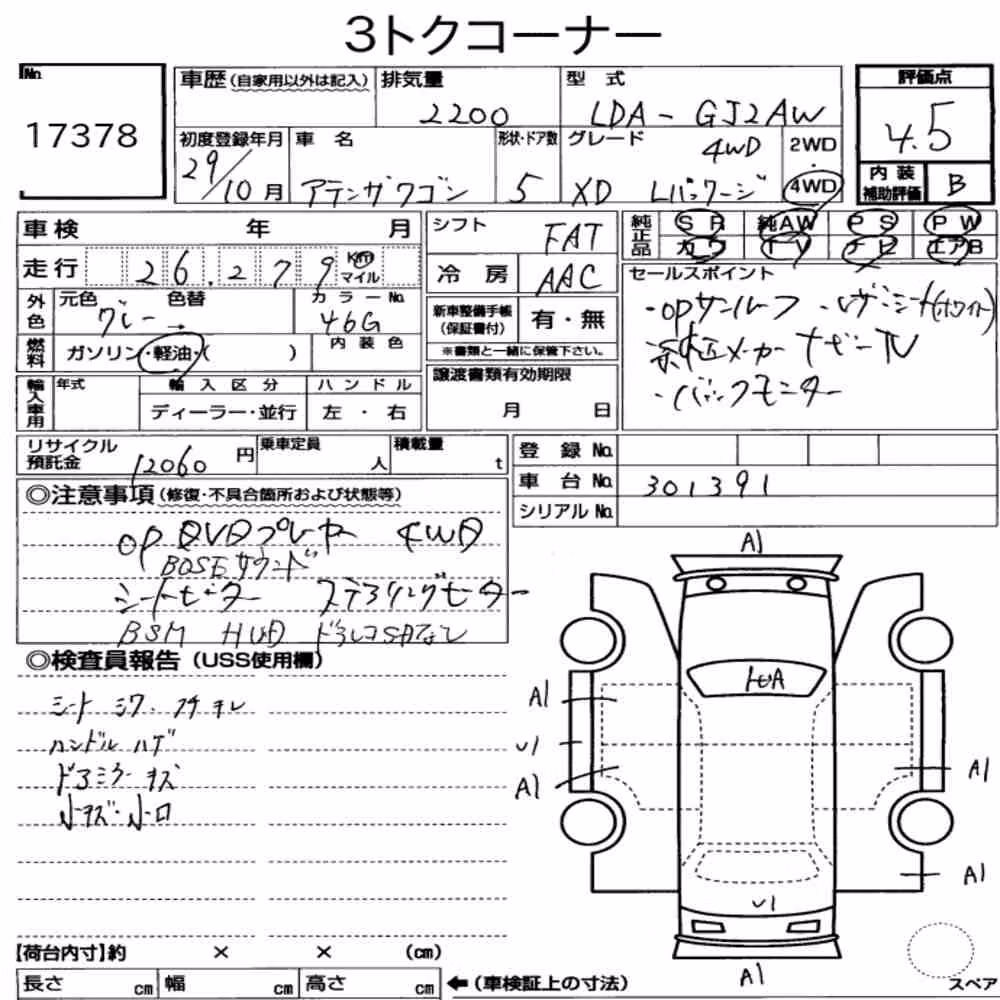 3トクコーナー
No.
17378
車歴 (自家用以外は記入)
排気量
2200
型 式
LDA - GJ2AW
評価点
4.5
内装補助評価
B
初度登録年月
29/10月
車 名
アテンザワゴン
形状・ドア数
5
グレード
4WD
XD Lパッケージ
2WD
・
4WD
車検 年 月
走行
26.279
Km
マイル
シフト
FAT
冷 房
AAC
純正品
S R
純AW
P S
P W
カワ
T V
ナビ
エアB
外色
元色 色替
グレー →
カラーNo.
46G
新車整備手帳
(保証書付)
有・無
※書類と一緒に保管下さい。
セールスポイント
・opサンルーフ ・レザーシート(ホワイト)
純正メーカーナビ-TV
・バックモニター
燃料
ガソリン・軽油・( )
内 装 色
輸入車用
年式
輸 入 区 分
ディーラー・並行
ハ ン ド ル
左 ・ 右
譲渡書類有効期限
月 日
リサイクル
預託金
12060円
乗車定員
人
積載量
t
登 録 No.
車 台 No.
301391
シリアル No.
◎注意事項 (修復・不具合箇所および状態等)
op DVDプレヤー 4WD
BOSEサウンド
シートヒーター ステアリングヒーター
BSM HUD ドラレコSDなし
◎検査員報告 (USS使用欄)
シート シワ・フチキレ
ハンドル ハゲ
ドアミラー キズ
小キズ・小凹
A1
A1
U1
A1
A1
A1
U1
A1
スペア
【荷台内寸】約 × × (cm)
長さ cm
幅 cm
高さ cm
←(車検証上の寸法)